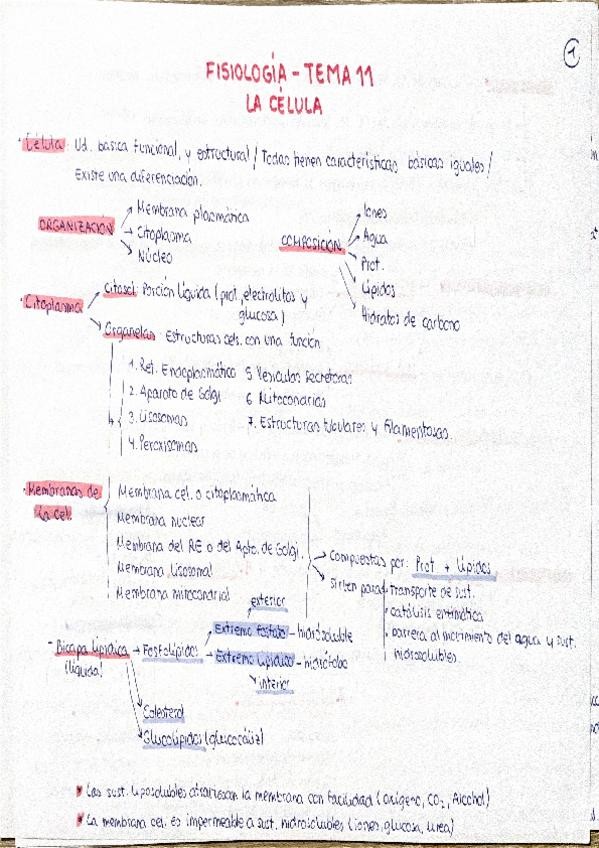 1
FISIOLOGÍA - TEMA 11
LA CÉLULA
· Célula Ud. básica funcional, y estructural / Todas tienen características básicas iguales /
Existe una diferenciación.
ORGANIZACIÓN
→ Membrana plazmática
→ Citoplasma
→ Núcleo
COMPOSICIÓN
→ Iones
→ Agua
→ Prot.
→ Lípidos
→ Hidratos de carbono
· Citoplasma
→ Citosol: Porción líquida (prot, electrolitos y
glucosa)
→ Organelas Estructuras cels. con una función.
1. Ret. Endoplasmático 5 Vesículas secretoras
2. Aparato de Golgi 6 Mitocondrias
3. Lisosomas 7. Estructuras tubulares y filamentosas.
4. Peroxisomas
· Membranas de
la cel.
Membrana cel. o citoplasmática
Membrana nuclear
Membrana del RE o del Apto. de Golgi.
Membrana lisosomal
Membrana mitocondrial
→ Compuestas por: Prot + Lípidos
→ Sirven para:
· transporte de sust.
· catálisis enzimática
· barrera al movimiento del agua y sust.
hidrosolubles.
- Bicapa lipídica
(líquida)
→ Fosfolípidos
exterior
→ Extremo fosfato - hidrosoluble
→ Extremo lipídico - hidrófobo
interior
Colesterol
Glucolípidos (glucocáliz)
Las sust. liposolubles atraviesan la membrana con facilidad (oxígeno, CO2, Alcohol)
La membrana cel. es impermeable a sust. hidrosolubles (iones, glucosa, urea)